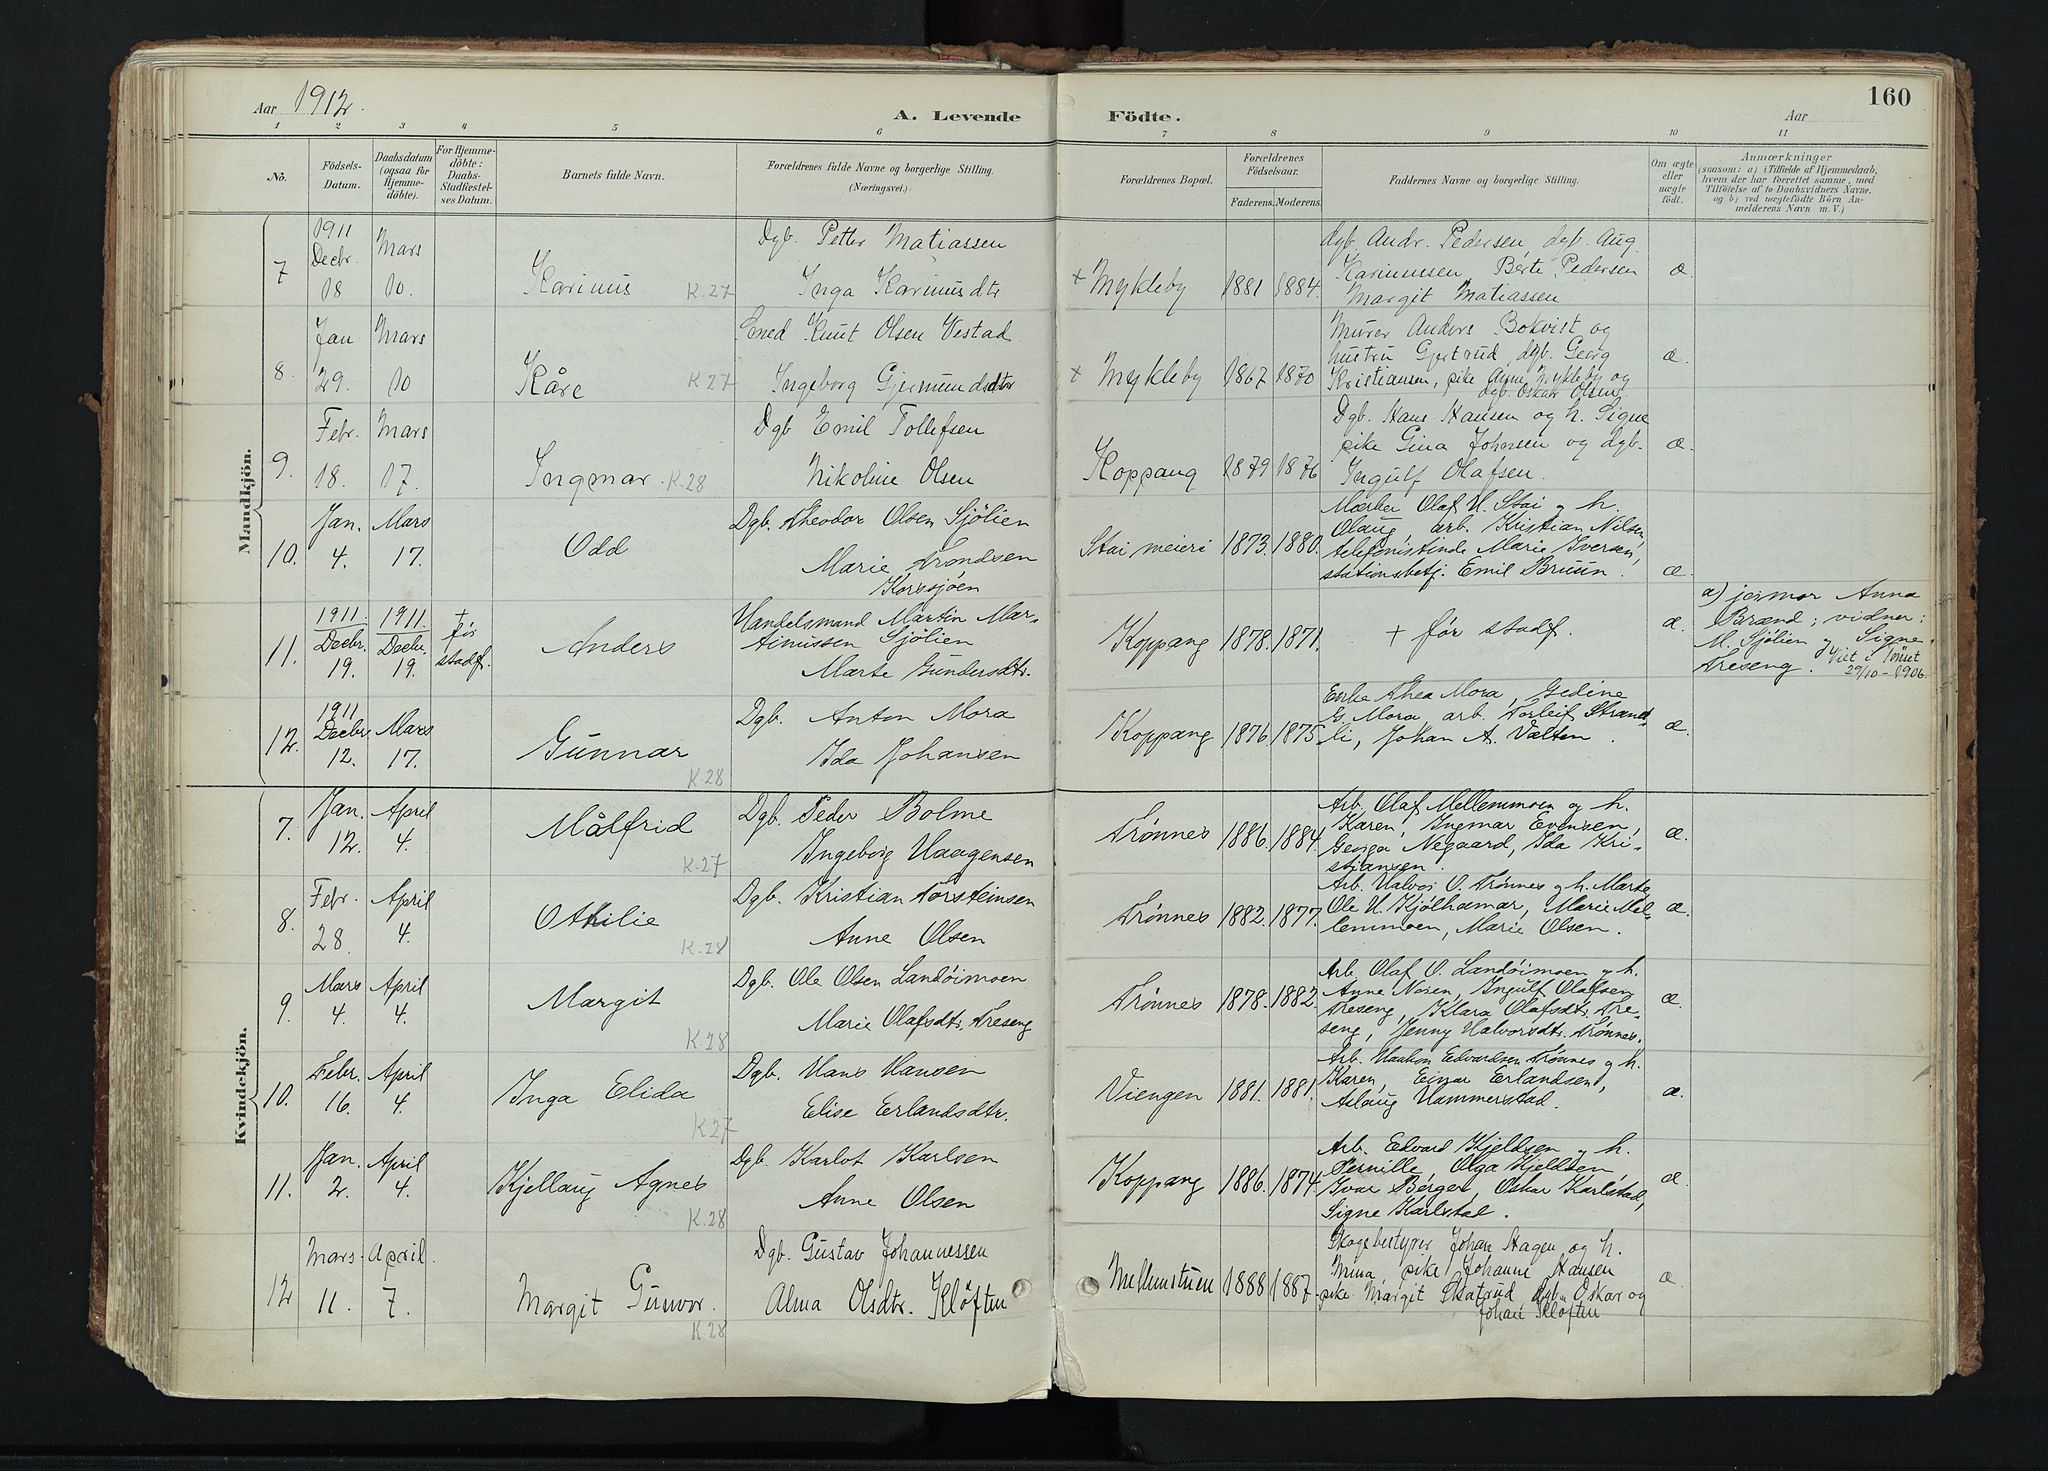 Aar 1912.
A. Levende
Fødte.
Aar
160
1 2 3 4 5 6 7 8 9 10 11
No.
Fødsels-Datum.
Daabsdatum (ogsaa for Hjemme-døbte).
For Hjemme-døbte: Daabs-Stadfæstel-ses Datum.
Barnets fulde Navn.
Forældrenes fulde Navne og borgerlige Stilling. (Næringsvei.)
Forældrenes Bopæl.
Forældrenes Fødselsaar.
Faderens. Moderens.
Faddernes Navne og borgerlige Stilling.
Om ægte eller uægte født.
Anmærkninger
(saasom: a) i Tilfælde af Hjemmedaab, hvem der har forrettet samme, med Tilføielse af to Daabsvidners Navne, og b) ved uægtefødte Børn Anmelderens Navn m. V.)
Mandkjøn.
7 1911 Decbr. 18 Mars 10. Karinus K.27
Dgb. Petter Matiassen
Inga Karinusdtr
+ Mykleby 1881 1884.
dgb. Andr. Pedersen, dgb. Aug.
Karinussen, Berte Pedersen
Margit Matiassen
æ
8. Jan 29. Mars 10 Kåre K27
Em. Knut Olsen Vestad
Ingeborg Gjermundsdtr
+ Mykleby 1867 1870
Murer Anders Bokvist og
hustru Gjertrud, dgb. Georg
Kristiansen, pike Anne Mykleby og
dgb. Oskar Olsen.
æ.
9. Febr. 18. Mars 17. Ingmar. K.28
Dgb Emil Tollefsen
Nikoline Olsen
Koppang 1879 1876
Dgb. Hans Hansen og h. Signe
pike Gina Johnsen og dgb.
Ingulf Olafsen.
æ.
10. Jan. 4. Mars 17. Odd
Dgb. Theodor Olsen Sjölien
Marie Trondsen
Korssjøen
Stai meieri 1873. 1880.
Mærker Olaf H. Stai og h.
Olaug, arb. Kristian Nilsen,
telefonistinde Marie Iversen,
stationsbetj. Emil Bruun.
æ.
11. 1911. Decbr. 19. 1911. Decbr. 19. + før stadf. Anders
Handelsmand Martin Mar-
tinussen Sjölien
Marte Gundersdtr.
Koppang 1878. 1871.
+ før stadf.
æ.
a) jormor Anna
Brænd; vidner:
M. Sjølien og Signe
Treseng. Viet i Tönset
29/10 - 1906.
12. 1911 Decbr. 12. Mars 17. Gunnar K.28
Dgb. Anton Mora
Ida Johansen
Koppang 1876 1875
Enke Thea Mora, Gedine
G. Mora, arb. Torleif Strand-
li, Johan A. Valten.
æ.
Kvindekjøn.
7. Jan. 12. April 4. Målfrid K.27
Dgb. Peder Bolme
Ingeborg Haagensen
Trønnes 1886. 1884.
Arb. Olaf Mellemmoen og h.
Karen, Ingmar Evensen,
Georga Negaard, Ida Kri-
stiansen.
æ.
8. Febr. 28. April 4. Othilie K.28
Dgb. Kristian Torsteinsen
Anne Olsen
Trønnes 1882. 1877.
Arb. Halvor O. Trønnes og h. Marte
Ole H. Kjølhamar, Marie Mel
lemmoen, Marie Olsen.
æ.
9. Mars 4. April 4. Margit K.28
Dgb. Ole Olsen Landøimoen
Marie Olafsdtr. Treseng
Trønnes 1878. 1882.
Arb. Olaf O. Landøimoen og h.
Anne Noren, Ingulf Olafsen
Treseng, Klara Olafsdtr. Tre-
seng, Jenny Halvorsdtr. Trønnes.
æ.
10. Febr. 16. April 4. Inga Elida K.27
Dgb. Hans Hansen
Elise Erlandsdtr.
Viengen 1881. 1881.
Arb. Haakon Edvardsen Trønnes og h.
Karen, Einar Erlandsen,
Aslaug Hammerstad.
æ.
11. Jan. 2. April 4. Kjellaug Agnes K.28
Dgb. Karlot Karlsen
Anne Olsen
Koppang 1886. 1874.
Arb. Edvard Kjeldsen og h.
Pernille, Olga Kjeldsen,
Ivar Berger, Oskar Karlstad,
Signe Karlstad.
æ.
12 Mars. 11. April. 7. Margit Gunvor. K.28
Dgb. Gustav Johannessen
Alma Olsdtr. Kløften
Mellemstuen 1888 1887.
Skogbestyrer Johan Hagen og h.
Mina, pike Johanne Hansen
pike Margit Skatrud dgb. Oskar og
Johan Kløften
æ.